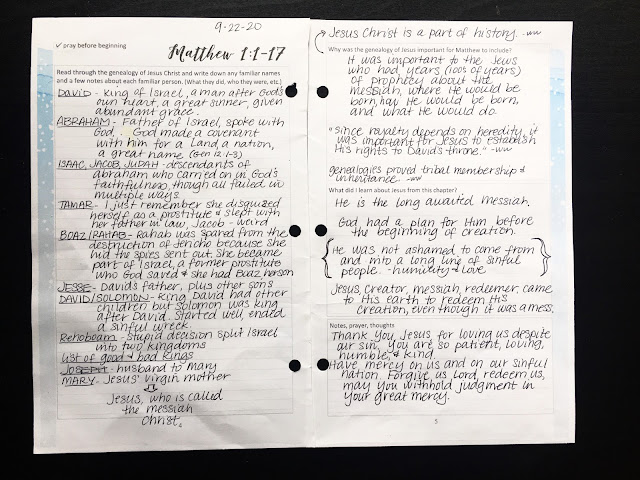 9-22-20
✓ pray before beginning
Matthew 1:1-17
Read through the genealogy of Jesus Christ and write down any familiar names
and a few notes about each familiar person. (What they did, who they were, etc.)
DAVID - King of Israel, a man after God's
own heart, a great sinner, given
abundant grace.
ABRAHAM - Father of Israel, spoke with
God, . God made a covenant
with him for a Land, a nation,
a great name (Gen 12:1-3)
ISAAC, JACOB, JUDAH - descendants of
abraham who carried on in God's
faithfulness, though all failed in
multiple ways.
TAMAR - I just remember she disguized
herself as a prostitute & slept with
her father in law, Jacob - weird
BOAZ/RAHAB - Rahab was spared from the
destruction of Jericho because she
hid the spies sent out. She became
part of Israel, a former prostitute
who God saved & she had Boaz, her son
JESSE - David's father, plus other sons
DAVID/SOLOMON - King David had other
children but Solomon was King
after David. Started well, ended
a sinful wreck.
Rehoboam - Stupid decision split Israel
into two Kingdoms
List of good & bad Kings
JOSEPH - husband to mary
MARY - Jesus' virgin mother
Jesus, who is called
the messiah
Christ.
Jesus Christ is a part of history. -ww
Why was the genealogy of Jesus important for Matthew to include?
It was important to the Jews
who had years (100s of years)
of prophecy about the
messiah, where He would be
born, how He would be born,
and what He would do.
"Since royalty depends on heredity, it
was important for Jesus to establish
His rights to David's throne." -ww
genealogies proved tribal membership &
inheritance. -ww
What did I learn about Jesus from this chapter?
He is the long awaited messiah.
God had a plan for Him before
the beginning of creation.
He was not ashamed to come from
and into a long line of sinful
people. - humility & love
Jesus, creator, messiah, redeemer, came
to His earth to redeem His
creation, even though it was a mess.
Notes, prayer, thoughts
Thank you Jesus for loving us despite
our sin, you are so patient, loving,
humble, & kind.
Have mercy on us and on our sinful
nation. Forgive us Lord, redeem us,
may you withhold judgment in
your great mercy.
5